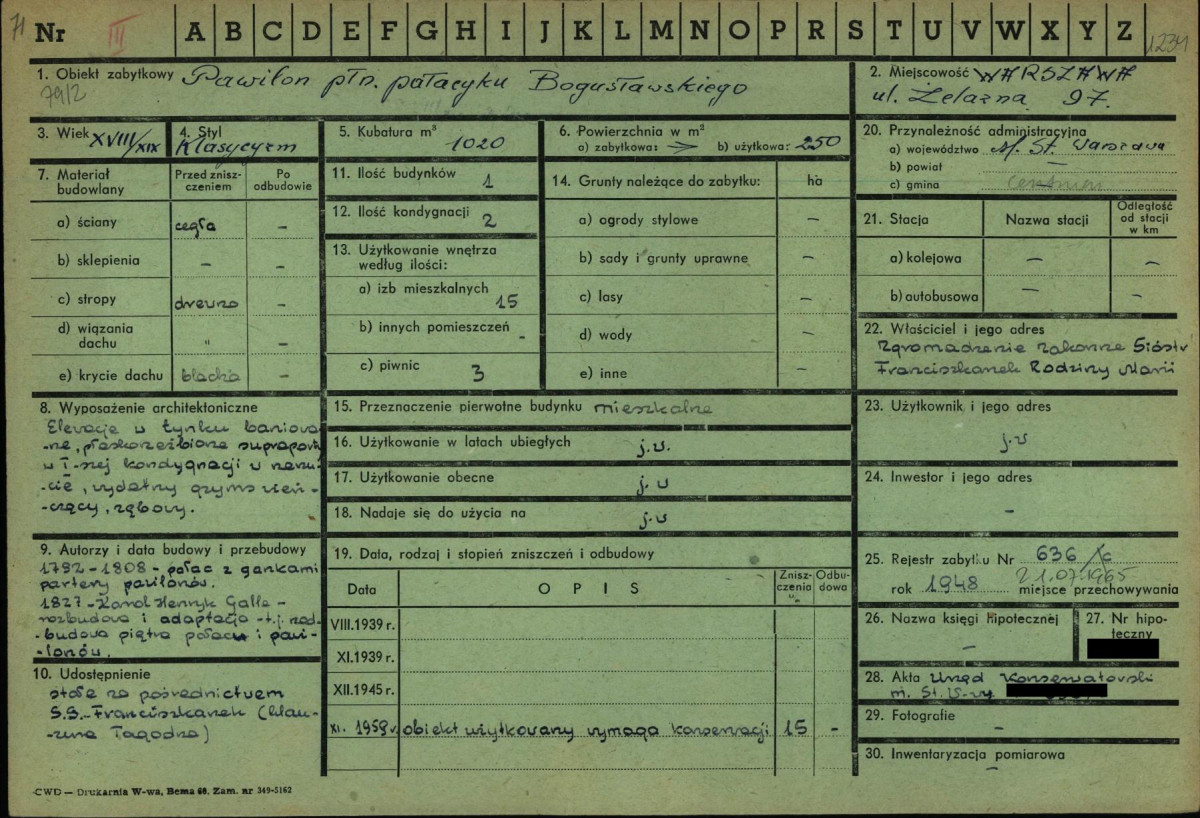 71
Nr III A B C D E F G H I J K L M N O P R S T U V W X Y Z 1234
1. Obiekt zabytkowy Pawilon płn. pałacyku Bogusławskiego
79/2
2. Miejscowość WARSZAWA
ul. Żelazna 97.
3. Wiek XVIII/XIX
4. Styl
Klasycyzm
5. Kubatura m³
1020
6. Powierzchnia w m²
a) zabytkowa: b) użytkowa: 250
20. Przynależność administracyjna
a) województwo M. St. Warszawa
b) powiat —
c) gmina
7. Materiał budowlany
Przed zniszczeniem
Po odbudowie
a) ściany cegła –
b) sklepienia – –
c) stropy drewno –
d) wiązania dachu " –
e) krycie dachu blacha –
11. Ilość budynków 1
12. Ilość kondygnacji 2
13. Użytkowanie wnętrza
według ilości:
a) izb mieszkalnych 15
b) innych pomieszczeń -
c) piwnic 3
14. Grunty należące do zabytku: ha
a) ogrody stylowe –
b) sady i grunty uprawne –
c) lasy –
d) wody –
e) inne –
21. Stacja Nazwa stacji Odległość od stacji w km
a) kolejowa – –
b) autobusowa – –
22. Właściciel i jego adres
Zgromadzenie zakonne Sióstr
Franciszkanek Rodziny Marii
8. Wyposażenie architektoniczne
Elewacje w tynku boniowa-
-ne, płaskorzeźbione supraporty
w I-szej kondygnacji w
, wydatny gzyms wień-
-czący, ząbkowy.
15. Przeznaczenie pierwotne budynku mieszkalne
16. Użytkowanie w latach ubiegłych j.w.
17. Użytkowanie obecne j.w
18. Nadaje się do użycia na j.w
23. Użytkownik i jego adres
j.w
24. Inwestor i jego adres
–
9. Autorzy i data budowy i przebudowy
1792-1808 - pałac z gankami
partery pawilonów.
1827 - Karol Henryk Galle -
rozbudowa i adaptacja - t.j. nad-
-budowa piętra pałacu i pawi-
-lonów.
19. Data, rodzaj i stopień zniszczeń i odbudowy
Data OPIS Zniszczenia % Odbudowa
VIII.1939 r.
XI.1939 r.
XII.1945 r.
XI. 1959 r. obiekt użytkowany wymaga konserwacji 15 –
25. Rejestr zabytku Nr 636
21.07.1965
rok 1948 miejsce przechowywania
26. Nazwa księgi hipotecznej
–
27. Nr hipoteczny
10. Udostępnienie
stałe za pośrednictwem
S.S. Franciszkanek
28. Akta Urząd Konserwatorski
m. St. W-wy
29. Fotografie
–
30. Inwentaryzacja pomiarowa
–
CWD — Drukarnia W-wa, Bema 60. Zam. nr 349-5162